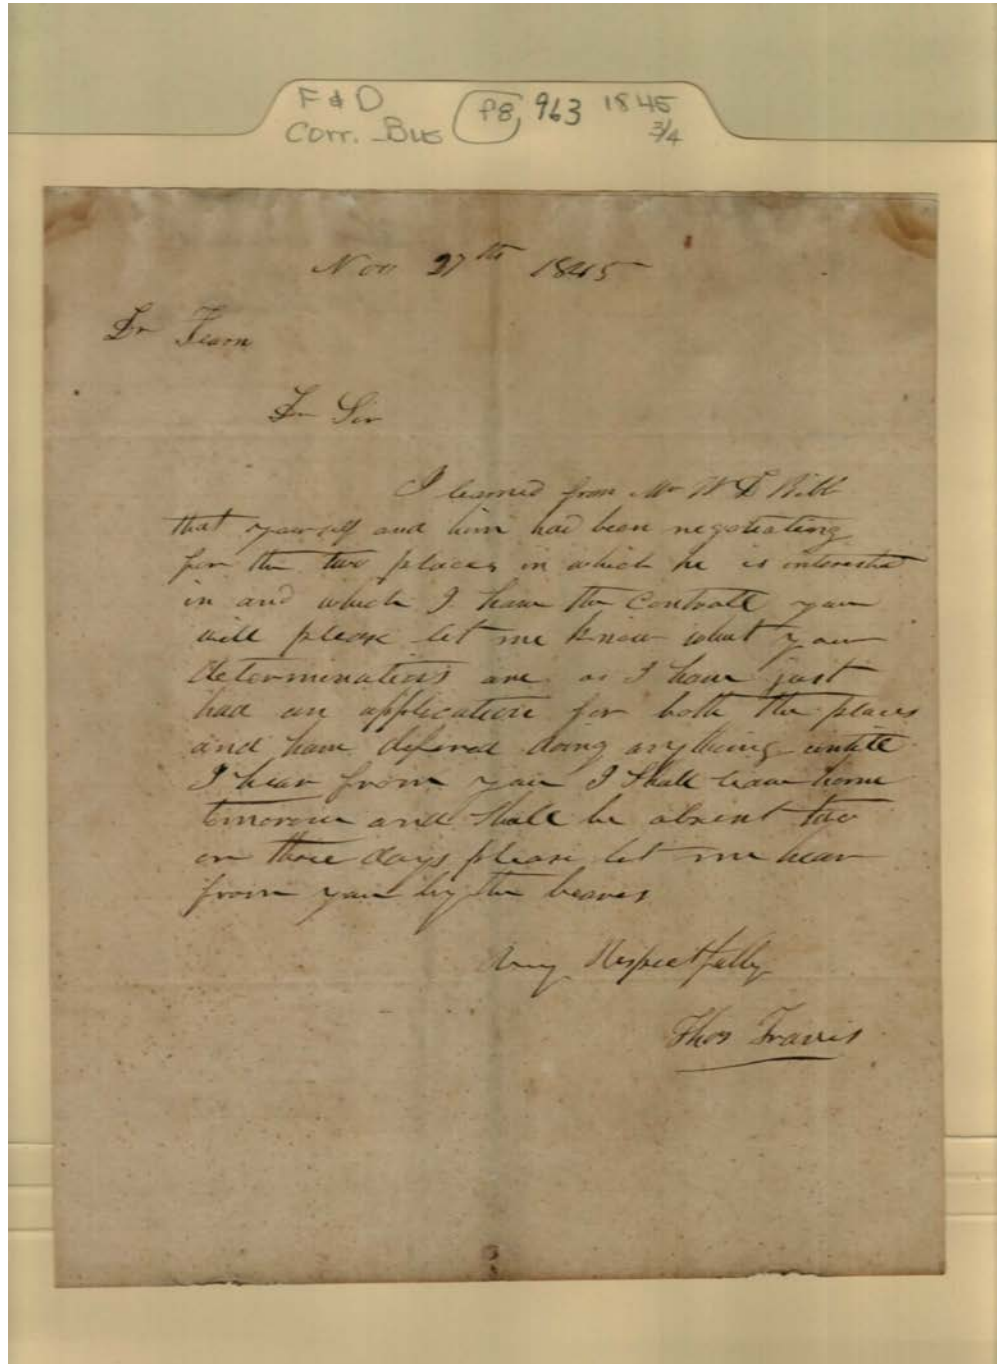 F & D
Corr. Bus f8, 963 1845
3/4
Nov 27th 1845
Dr Fearn
Dr Sir
I learned from Mr W D Bibb
that yourself and him had been negotiating
for the two places in which he is interested
in and which I have the Controll you
will please let me know what your
determinations are as I have just
had an application for both the places
and have defered doing anything untill
I hear from you I Shall leave home
tmorow and shall be absent two
or three days please let me hear
from you by the bearer
Very Respectfully
Thos Travis